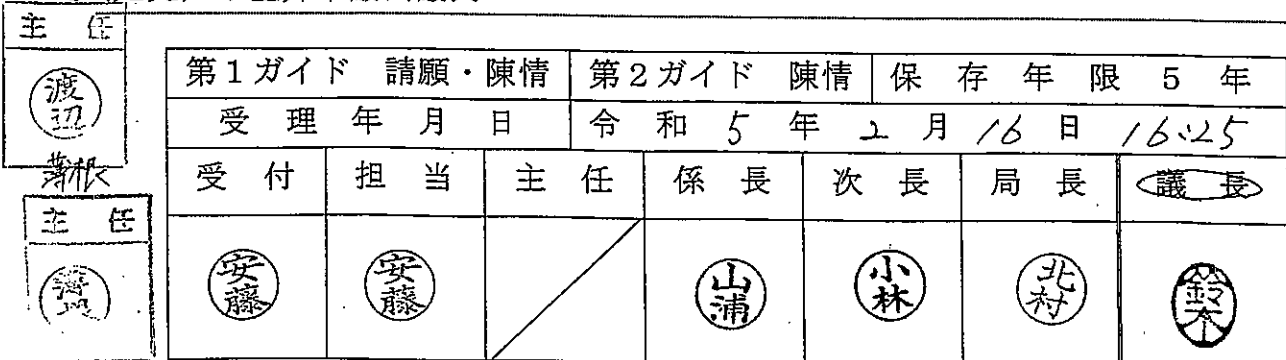 主 任
渡辺
薄根
主 任
第1ガイド 請願・陳情 第2ガイド 陳情 保存年限 5年
受理年月日 令和5年2月16日 16:25
受付 担当 主任 係長 次長 局長 議長
安藤 安藤 山浦 小林 北村 鈴木